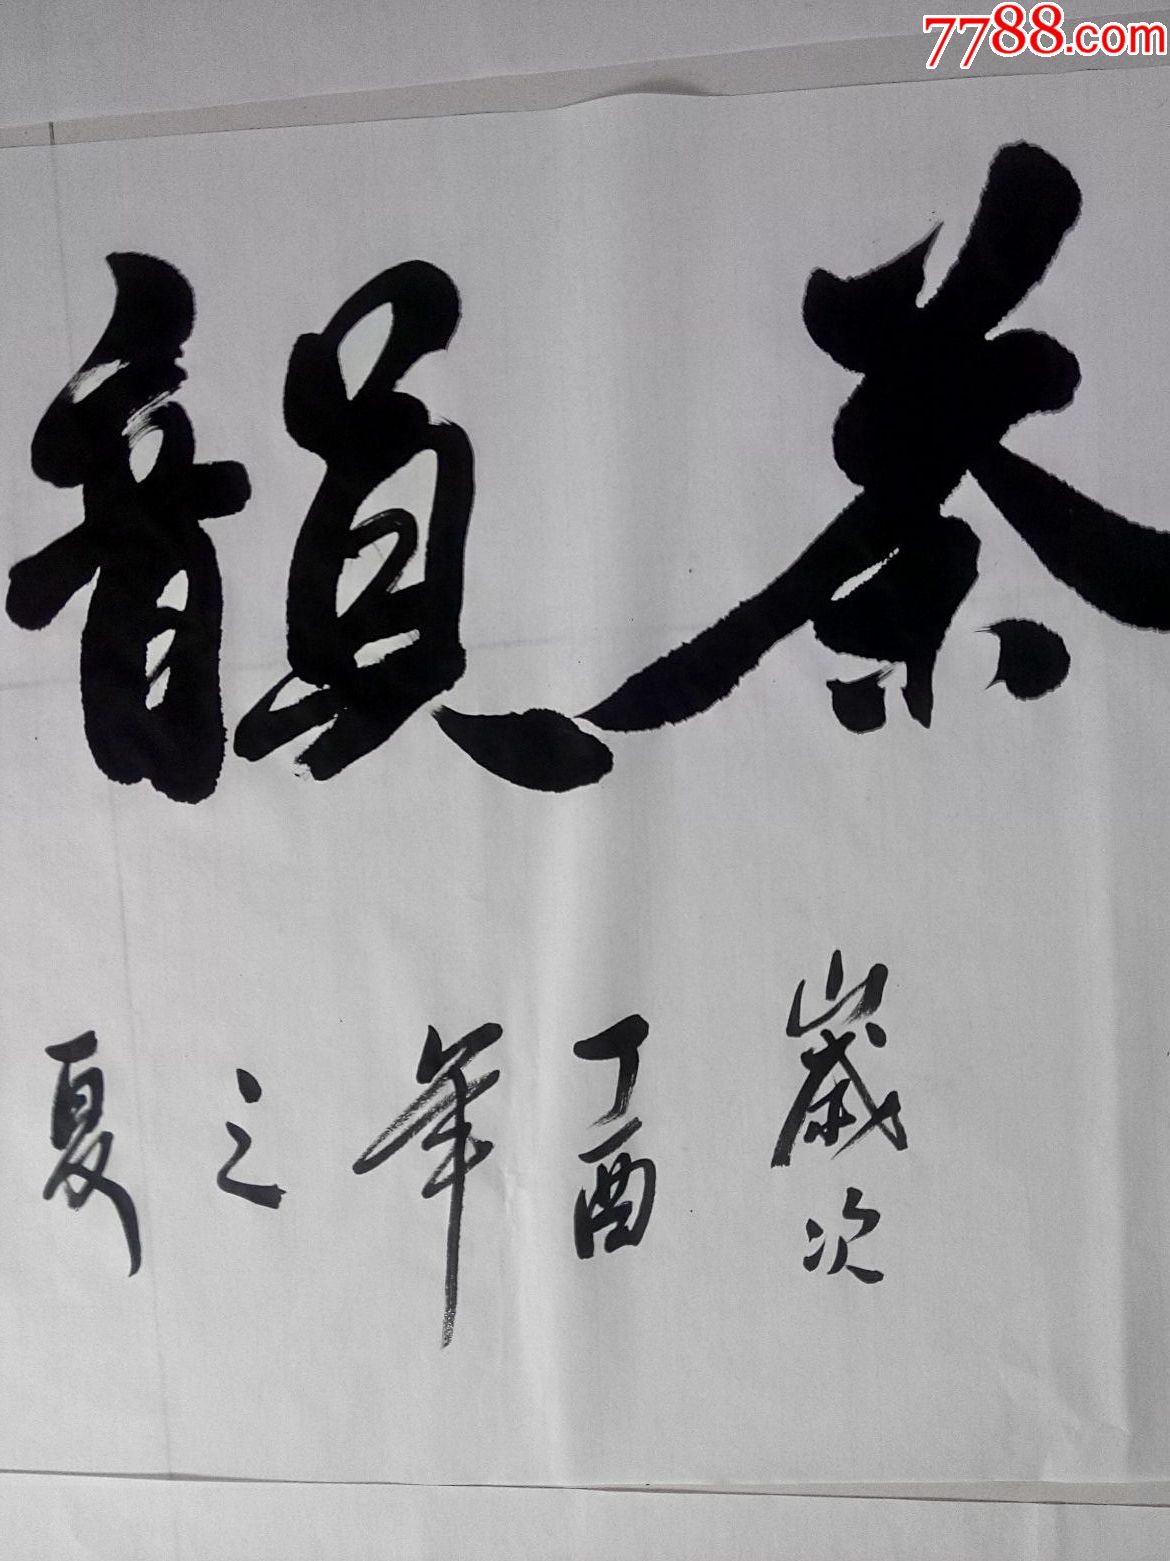 7788.com
茶韻
歲次
丁酉
年
之
夏